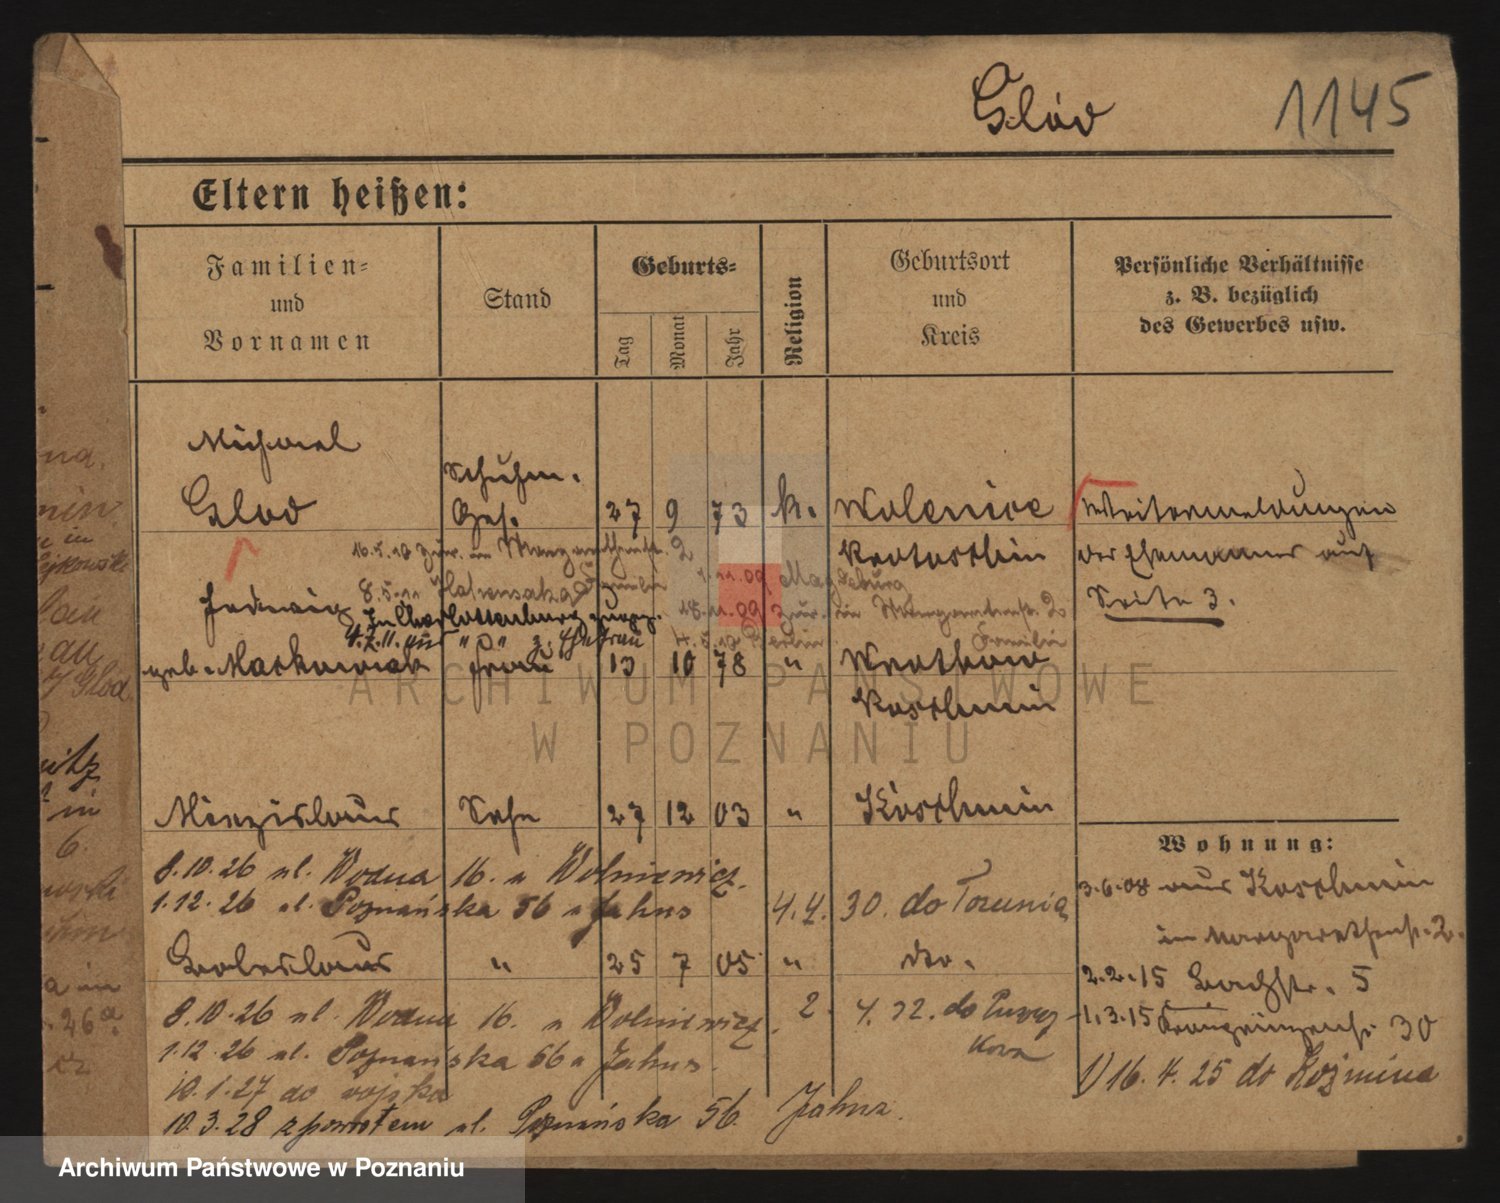 Glód 1145
Eltern heißen:
Familien-
und
Vornamen
Stand
Geburts-
Tag
Monat
Jahr
Religion
Geburtsort
und
Kreis
Persönliche Verhältnisse
z. B. bezüglich
des Gewerbes usw.
Michael
Schuhm.
Glod Ges. 27 9 73 k. Wolenice Weitermeldungen
16.5.10 zur. in Margarethenstr. 2 Krotoschin des Ehemannes auf
8.5.11 Familie 1.11.09 Magdeburg
Hedwig In Charlottenburg zugez. 18.11.09 zur. in Margaretenstr. 2 Seite 3.
4.7.11 aus " " z. Ehefrau 4.5.10 Berlin Familie
geb. Maskowiak Frau 13 10 78 "
Koschmin
Miezislaus Sohn 27 12 03 " Koschmin
Wohnung:
8.10.26 ul. Wodna 16. u Wolniewicz.
3.6.08 aus Koschmin
1.12.26 ul. Poznańska 56 u Jahns 4.4.30. do Torunia
in Margarethenstr. 2.
Boleslaus " 25 7 05 " do.
2.2.15 Bachstr. 5
8.10.26 ul. Wodna 16. u Wolniewicz. 2. 4. 22. do
1.3.15 Kronprinzenstr. 30
1.12.26 ul. Poznańska 56 u Jahns.
1) 16. 4. 25 do Koźmina
10.1.27 do wojska
10.3.28 z powrotem ul. Poznańska 56. Jahns.
ARCHIWUM PAŃSTWOWE
W POZNANIU
Archiwum Państwowe w Poznaniu